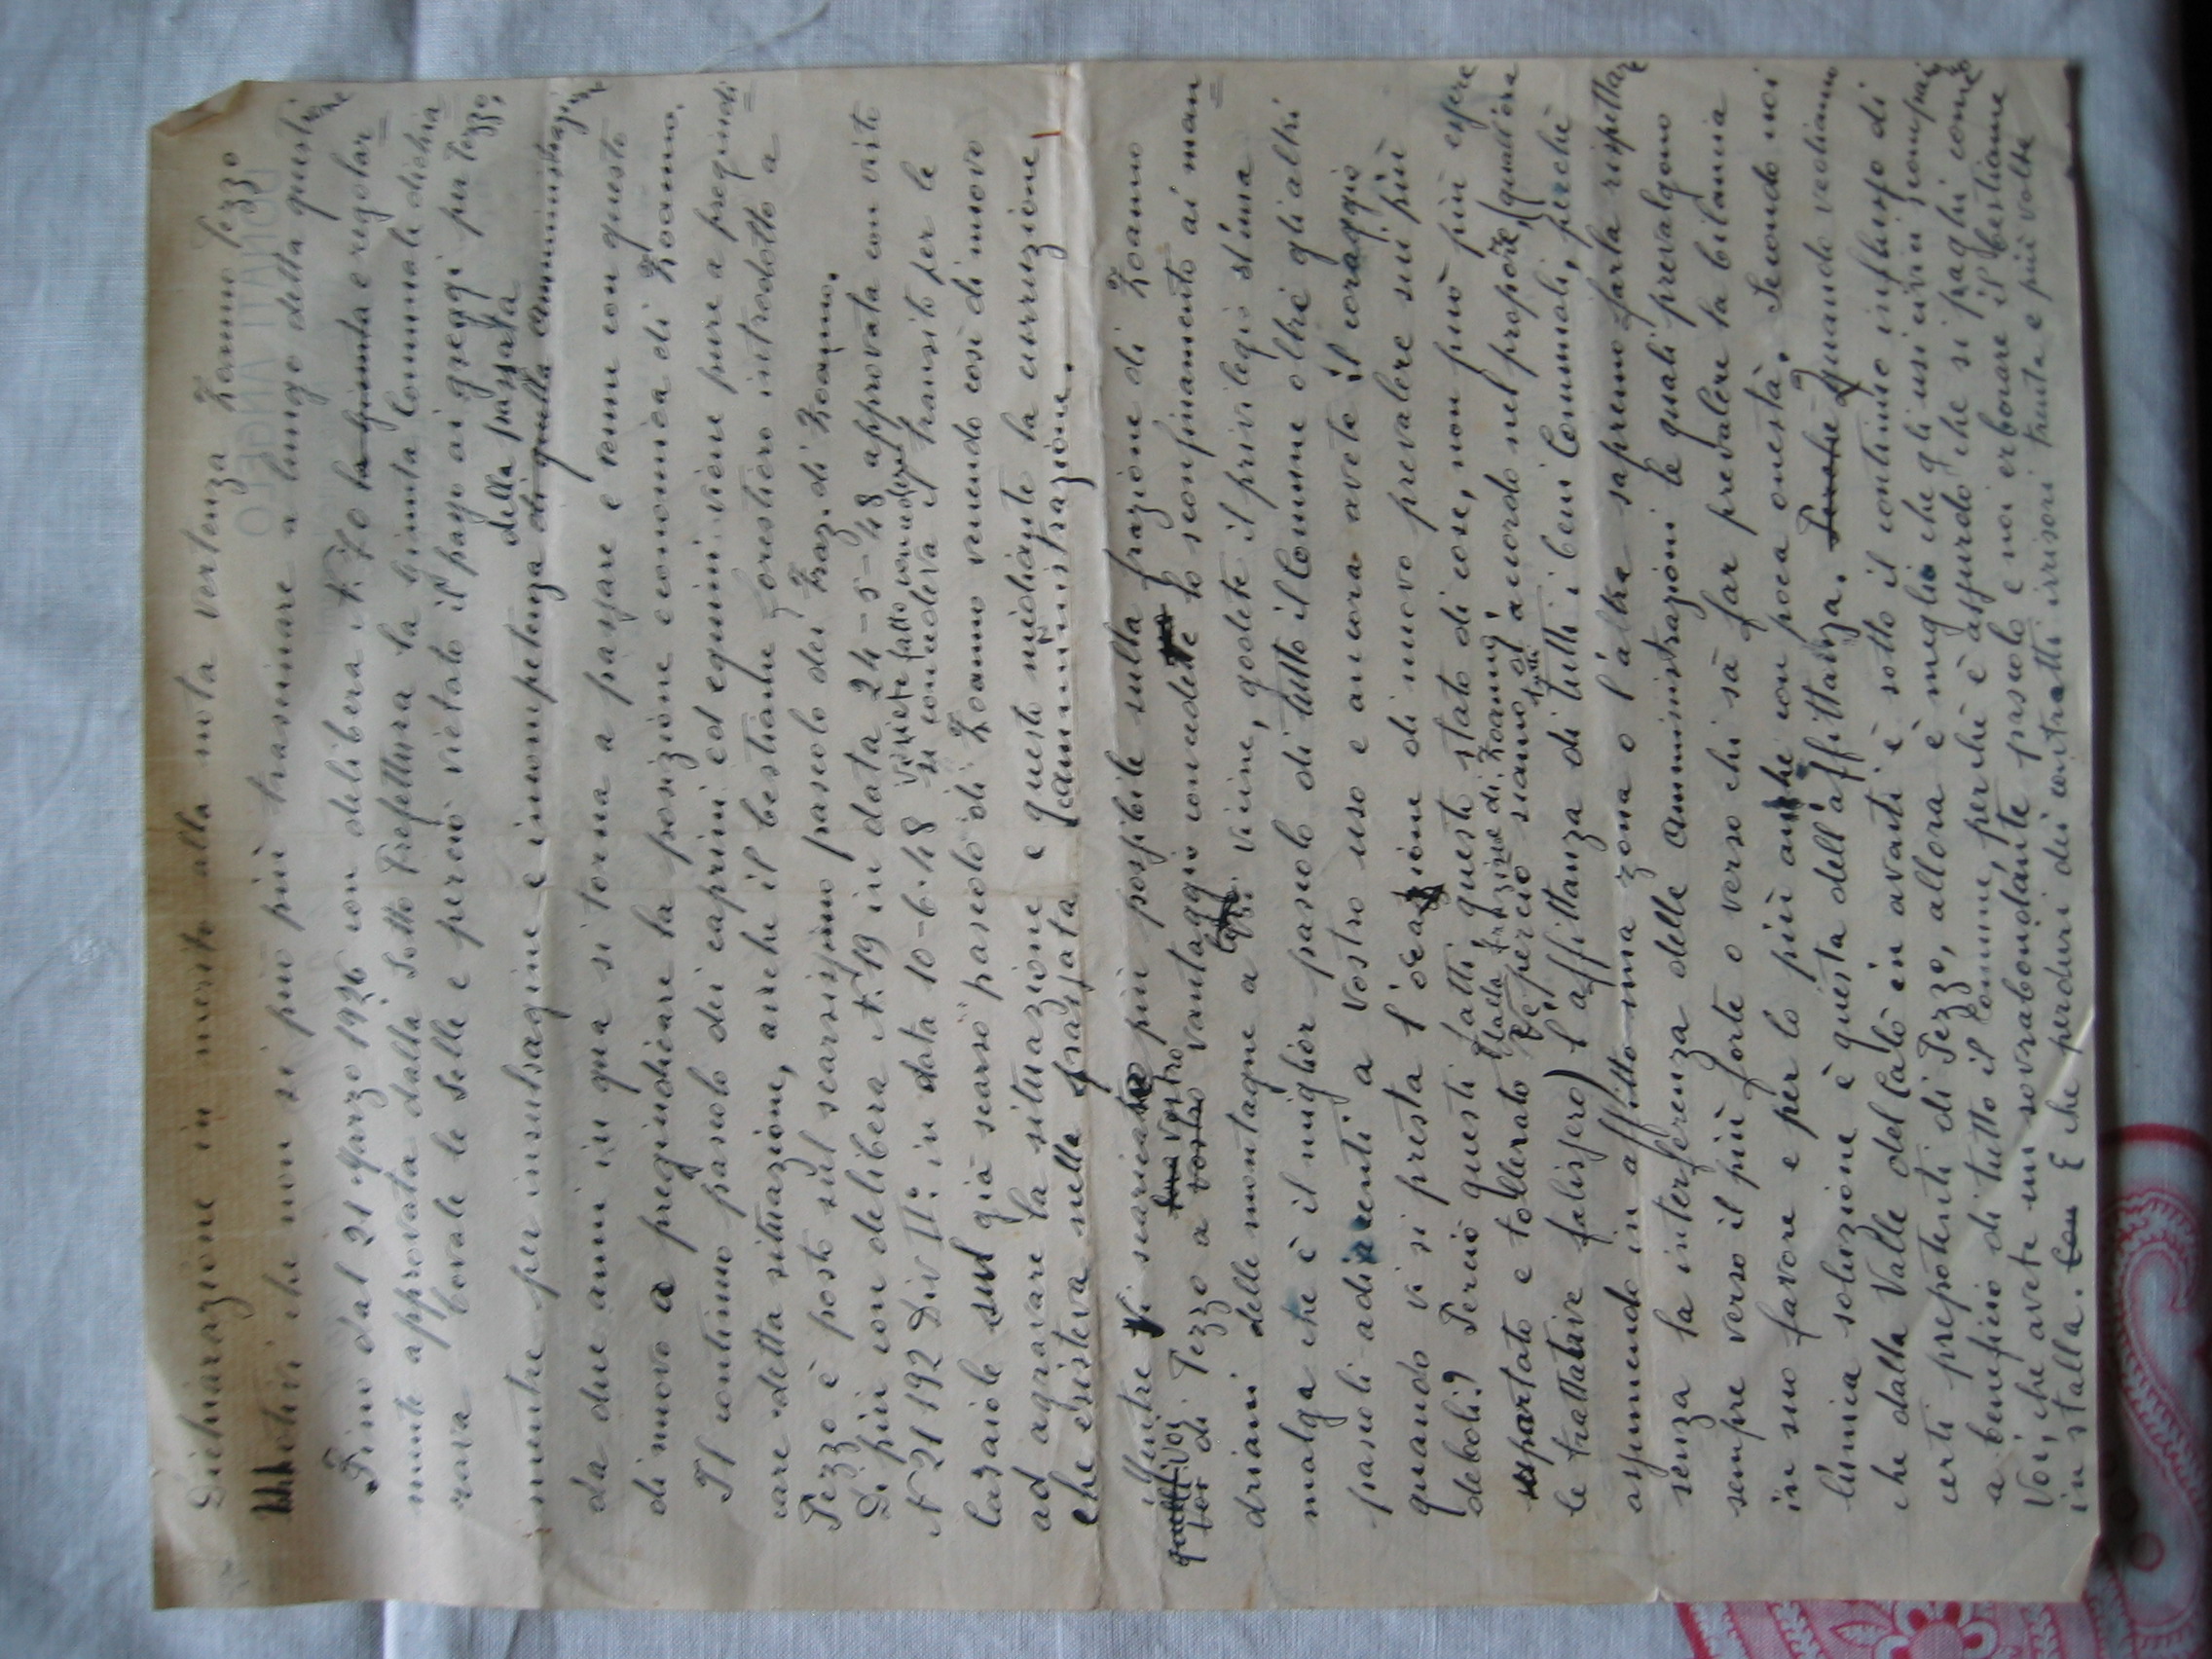 Dichiarazione in merito alla nota vertenza Zoanno Pezzo
Motivi che non si può più trascinare a lungo della questi
Fino dal 21 Marzo 1926 con delibera N. 70 la giunta e regolar=
mente approvata dalla Sotto Prefettura la Giunta Communale dichia=
rava bovale le Selle e perciò vietato il pasco ai greggi per Pezzo,
della passata
mentre per insulsagine e incompetenza di quella amministrazione
da due anni in qua si torna a passare e come con questo
di nuovo a pregiudicare la posizione economica di Zoanno.
Il continuo pascolo dei caprini ed equini viene pure a pregiudi=
care detta situazione, anche il bestiame forestiero introdotto a
Pezzo è posto sul scarsissimo pascolo dei Fraz. di Zoanno.
Di più con delibera N. 19 in data 24-5-48 approvata con visto
N 21192 Div II° in data 10-6-48 si concedeva il transito per le
Casaiole sul già scarso pascolo di Zoanno venendo così di nuovo
ad agravare la situazione e questo mediante la curruzione
che esisteva nella passata amministrazione.
Mentre Vi scaricate più possibile sulla frazione di Zoanno
Voi di Pezzo a vostro vantaggio concedete lo sconfinamento ai man=
driani delle montagne a Voi vicine, godete il privilegio d'una
malga che è il miglior pascolo di tutto il Comune oltre gli altri
pascoli adiacenti a Vostro uso e ancora avete il coraggio
quando vi si presta l'ocasione di nuovo prevalere sui più
deboli? Perciò questi fatti, questo stato di cose, non può più essere
sopartato e tollerato dalla frazione di Zoanno, e perciò siamo tutti d'acordo nel proporre, (qualora
le trattative falissero) l'affittanza di tutti i beni Communali, perchè
assumendo in affitto una zona o l'altra sapremo farla rispettare
senza la interferenza delle Amministrazioni le quali prevalgono
sempre verso il più forte o verso chi sà far prevalere la bilancia
in suo favore e per lo più anche con poca onestà. Secondo noi
l'unica soluzione è questa dell'affittanza. Perchè Quando vediamo
che dalla Valle del Catò in avanti è sotto il continuo influsso di
certi prepotenti di Pezzo, allora è meglio che gli usi civici scompaino
a beneficio di tutto il Comune, perchè è assurdo che si paghi come
Voi, che avete un sovrabondante pascolo e noi erborare il bestiame
in stalla. Con E che perduri dei contratti irrisori trenta e più volte